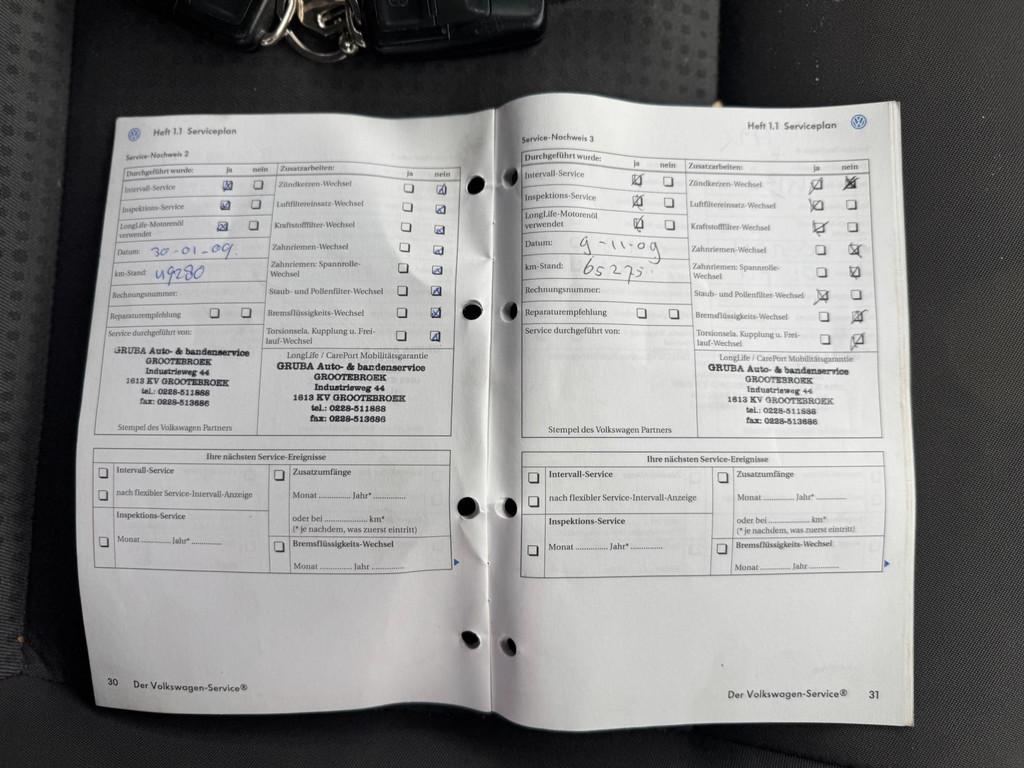 Heft 1.1 Serviceplan
Service-Nachweis 2
Durchgeführt wurde: ja nein
Intervall-Service
Inspektions-Service
LongLife-Motorenöl
verwendet
Datum: 30-01-09
km-Stand: 49280
Rechnungsnummer:
Reparaturempfehlung
Service durchgeführt von:
GRUBA Auto- & bandenservice
GROOTEBROEK
Industrieweg 44
1613 KV GROOTEBROEK
tel.: 0228-511888
fax: 0228-513686
Stempel des Volkswagen Partners
Zusatzarbeiten: ja nein
Zündkerzen-Wechsel
Luftfiltereinsatz-Wechsel
Kraftstofffilter-Wechsel
Zahnriemen-Wechsel
Zahnriemen: Spannrolle-
Wechsel
Staub- und Pollenfilter-Wechsel
Bremsflüssigkeits-Wechsel
Torsionsela. Kupplung u. Frei-
lauf-Wechsel
LongLife / CarePort Mobilitätsgarantie
GRUBA Auto- & bandenservice
GROOTEBROEK
Industrieweg 44
1613 KV GROOTEBROEK
tel.: 0228-511888
fax: 0228-513686
Ihre nächsten Service-Ereignisse
Intervall-Service
nach flexibler Service-Intervall-Anzeige
Inspektions-Service
Monat ............ Jahr* ............
Zusatzumfänge
Monat ............ Jahr* ............
oder bei ................ km*
(* je nachdem, was zuerst eintritt)
Bremsflüssigkeits-Wechsel
Monat ............ Jahr ............
30 Der Volkswagen-Service®
Heft 1.1 Serviceplan
Service-Nachweis 3
Durchgeführt wurde: ja nein
Intervall-Service
Inspektions-Service
LongLife-Motorenöl
verwendet
Datum: 9-11-09
km-Stand: 65275
Rechnungsnummer:
Reparaturempfehlung
Service durchgeführt von:
Stempel des Volkswagen Partners
Zusatzarbeiten: ja nein
Zündkerzen-Wechsel
Luftfiltereinsatz-Wechsel
Kraftstofffilter-Wechsel
Zahnriemen-Wechsel
Zahnriemen: Spannrolle-
Wechsel
Staub- und Pollenfilter-Wechsel
Bremsflüssigkeits-Wechsel
Torsionsela. Kupplung u. Frei-
lauf-Wechsel
LongLife / CarePort Mobilitätsgarantie
GRUBA Auto- & bandenservice
GROOTEBROEK
Industrieweg 44
1613 KV GROOTEBROEK
tel.: 0228-511888
fax: 0228-513686
Ihre nächsten Service-Ereignisse
Intervall-Service
nach flexibler Service-Intervall-Anzeige
Inspektions-Service
Monat ............ Jahr* ............
Zusatzumfänge
Monat ............ Jahr* ............
oder bei ................ km*
(* je nachdem, was zuerst eintritt)
Bremsflüssigkeits-Wechsel
Monat ............ Jahr ............
Der Volkswagen-Service® 31